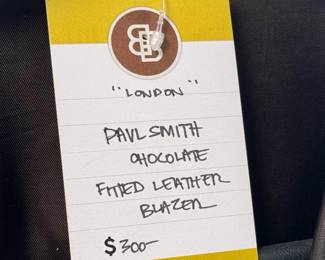 BB
"LONDON"
PAUL SMITH
CHOCOLATE
FITTED LEATHER
BLAZER
$300-